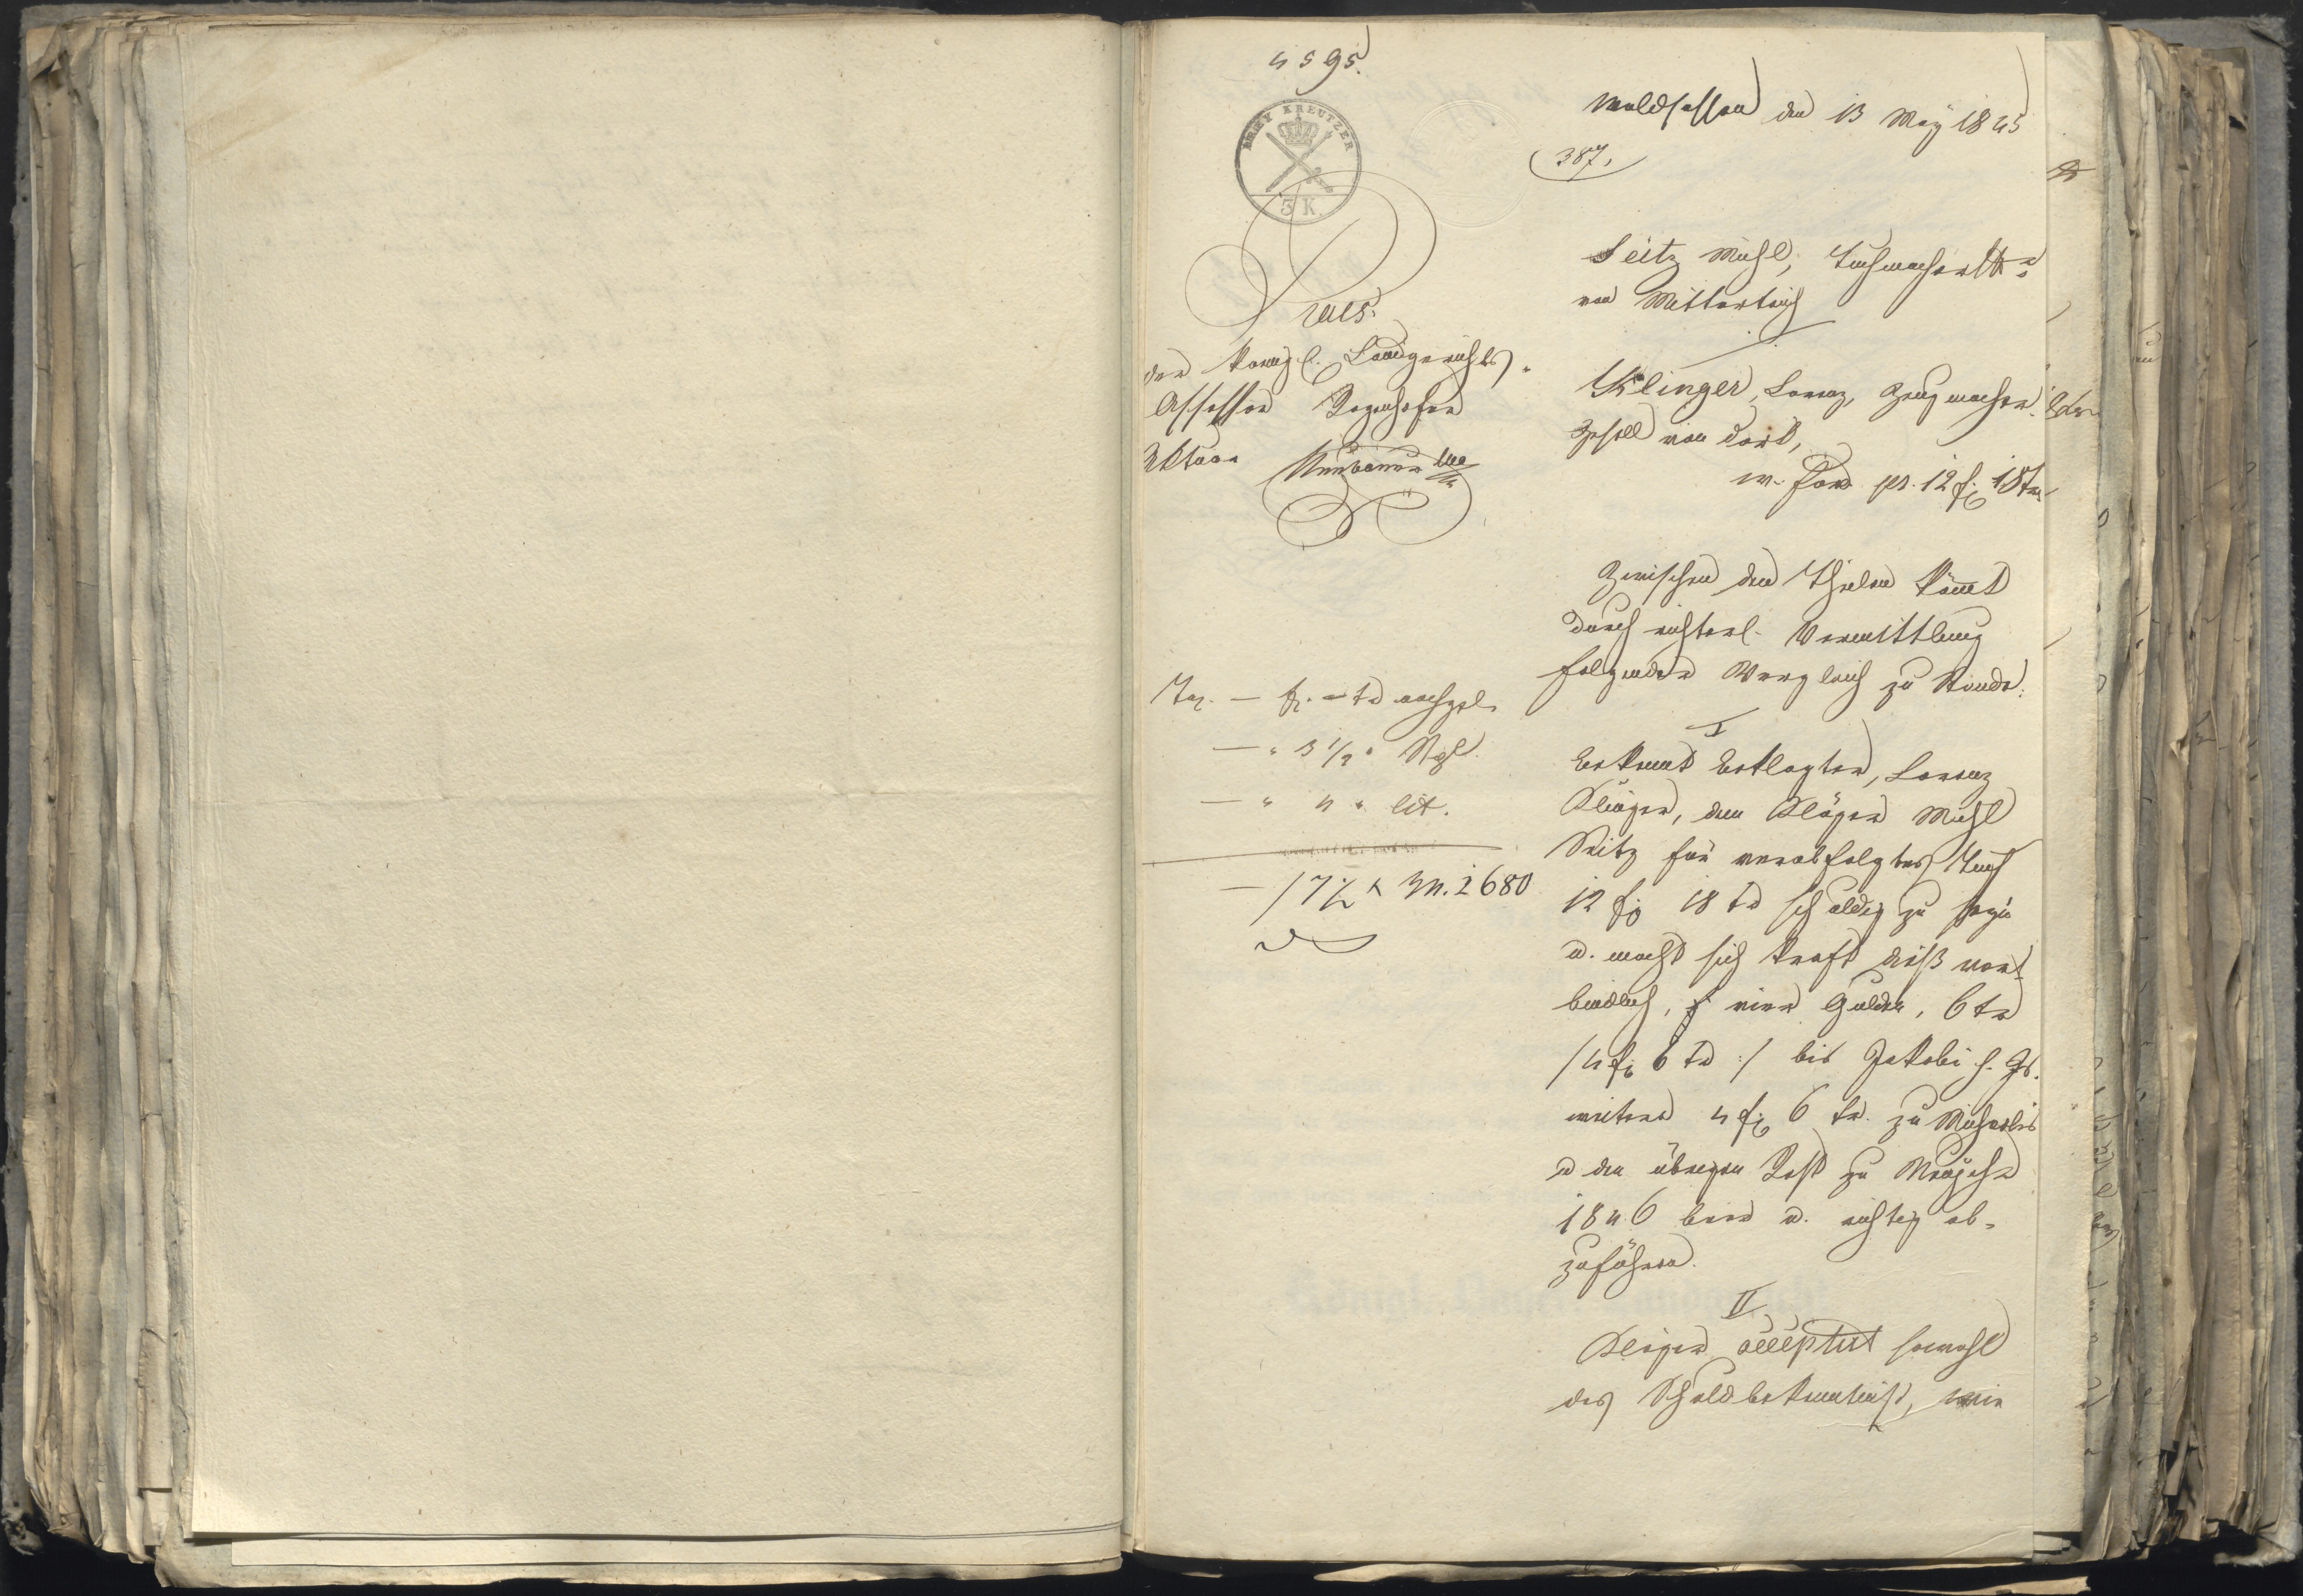 4595.
DREY KREUTZER
3 K.
Praes.
der königl. Landgerichts-
Assessor
Aktuar Neubauer
Tax. — fl. — kr nachgel.
— " 3 1/2 " Rgl.
— " 4 " lit.
— 17 1/2 x M. 2680
Waldsassen den 13 May 1845
387.
Seitz Michl, Tuchmacher
von Mitterteich
Klinger, Lorenz, Zeugmacher
Gesell von dort,
w. Ford. pr. 12 fl 18 kr
Zwischen den Theilen kömmt
durch richterl. Vermittlung
folgender Vergleich zu Stande:
I
Bekennt Beklagter, Lorenz
Klinger, dem Kläger Michl
Seitz für verabfolgtes Tuch
12 fl 18 kr schuldig zu seyn
u. macht sich kraft dieß ver-
bindlich, vier Gulden, 6 kr
/4 fl 6 kr :/ bis Jakobi h. Js.
weitere 4 fl 6 kr. zu Michaelis
u den übrigen Rest zu
1846 baar u. richtig ab-
zuführen.
II
Kläger acceptirt sowohl
das Schuldbekenntniß, wie